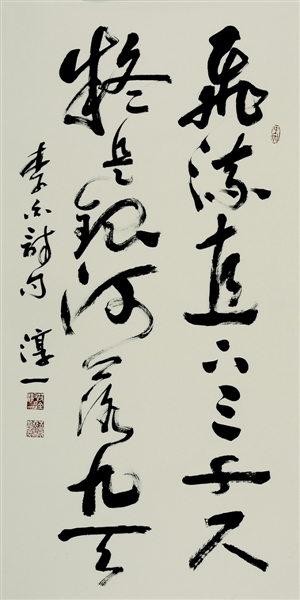 飛流直下三千尺
疑是銀河落九天
李白詩句 淳一